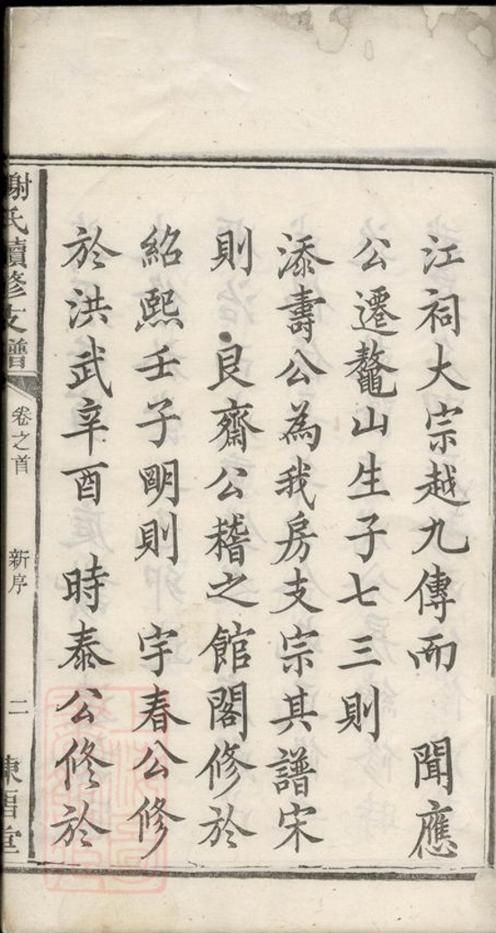 江祠大宗越九傳而　聞應
公遷鼇山生子七三則
添壽公為我房支宗其譜宋
則　良齋公稽之館閣修於
紹熙壬子明則　宇春公修
於洪武辛酉　時泰公修於
謝氏續修支譜　卷之首　新序　二